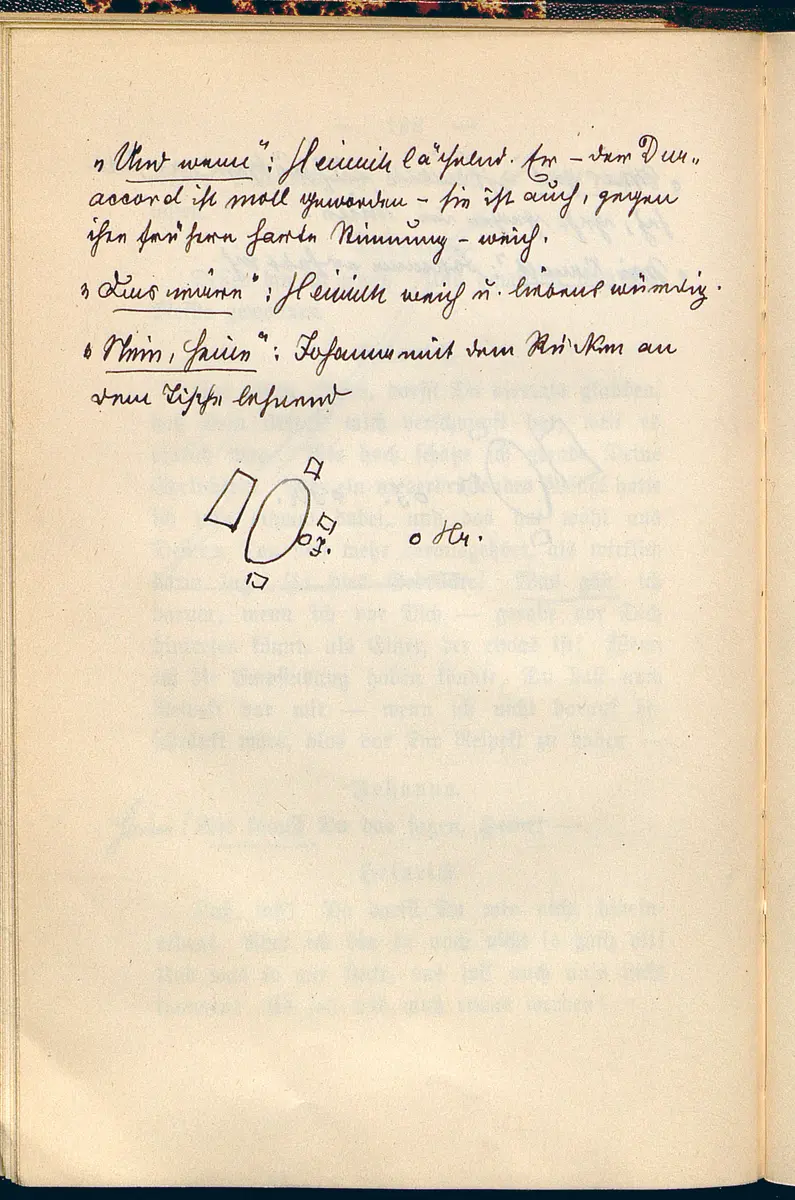 „Und wenn“: Heinrich lächelnd. Er – der Dur-
accord ist moll geworden – sie ist auch, gegen
ihre frühere harte Stimmung – weich.
„Das wäre“: Heinrich weich u. liebenswürdig.
„Nein, Heinr“: Johanna mit dem Rücken an
dem Tische lehnend
o J.
o Hr.